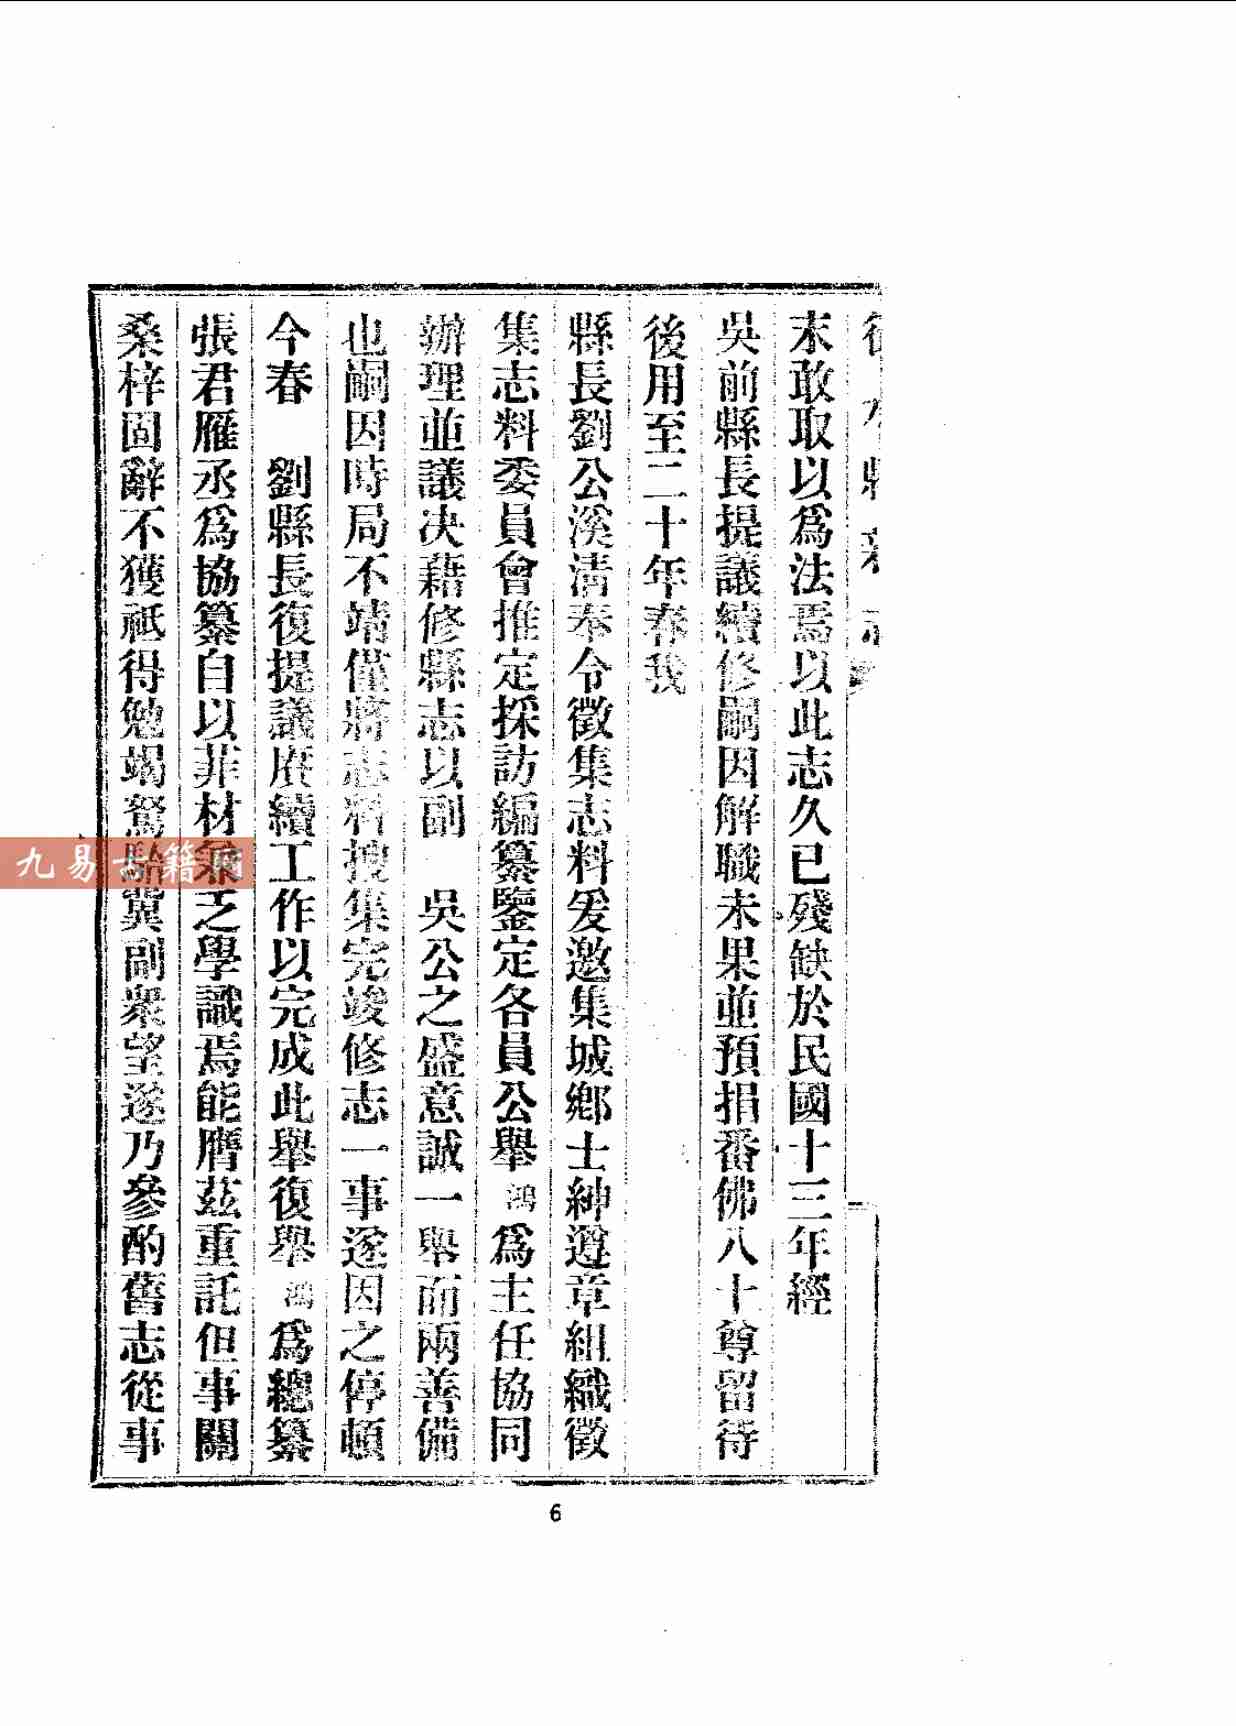 末敢取以爲法焉以此志久已殘缺於民國十三年經
吳前縣長提議續修嗣因解職未果並預捐番佛八十尊留待
後用至二十年春我
縣長劉公溪清奉令徵集志料爰邀集城鄉士紳遵章組織徵
集志料委員會推定採訪編纂鑒定各員公舉鴻爲主任協同
辦理並議决藉修縣志以副 吳公之盛意誠一舉而兩善備
也嗣因時局不靖僅將志料搜集完竣修志一事遂因之停頓
今春 劉縣長復提議賡續工作以完成此舉復舉鴻爲總纂
張君雁丞爲協纂自以菲材兼乏學識焉能膺茲重託但事關
桑梓固辭不獲祇得勉竭駑駘冀副衆望遂乃參酌舊志從事
九易古籍
6